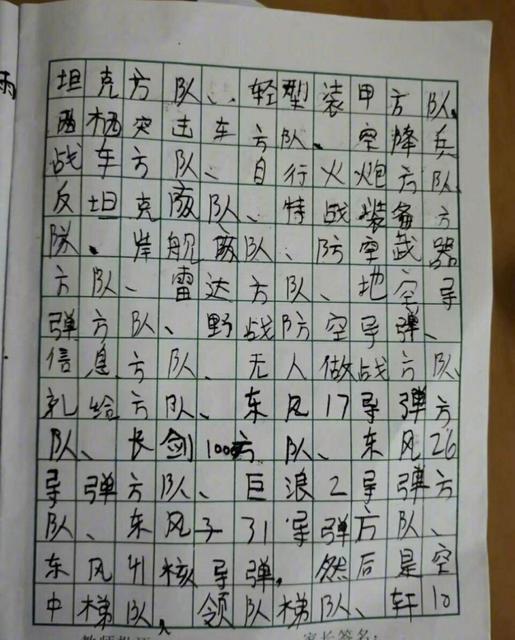 坦克方队、轻型装甲方队、
两栖突击车方队、空降兵
战车方队、自行火炮方队
反坦克方队、特战装备方
队、岸舰方队、防空武器
方队、雷达方队、地空导
弹方队、野战防空导弹、
信息方队、无人做战方队、
方队、东风17导弹方
队、长剑100方队、东风26
导弹方队、巨浪2导弹方
队、东风子31导弹方队、
东风41核导弹。然后是空
中梯队、领队梯队、轩10
家长签名: